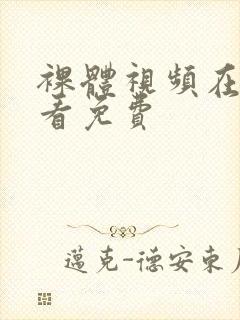 裸體視頻在
看免費
邁克-德安東尼